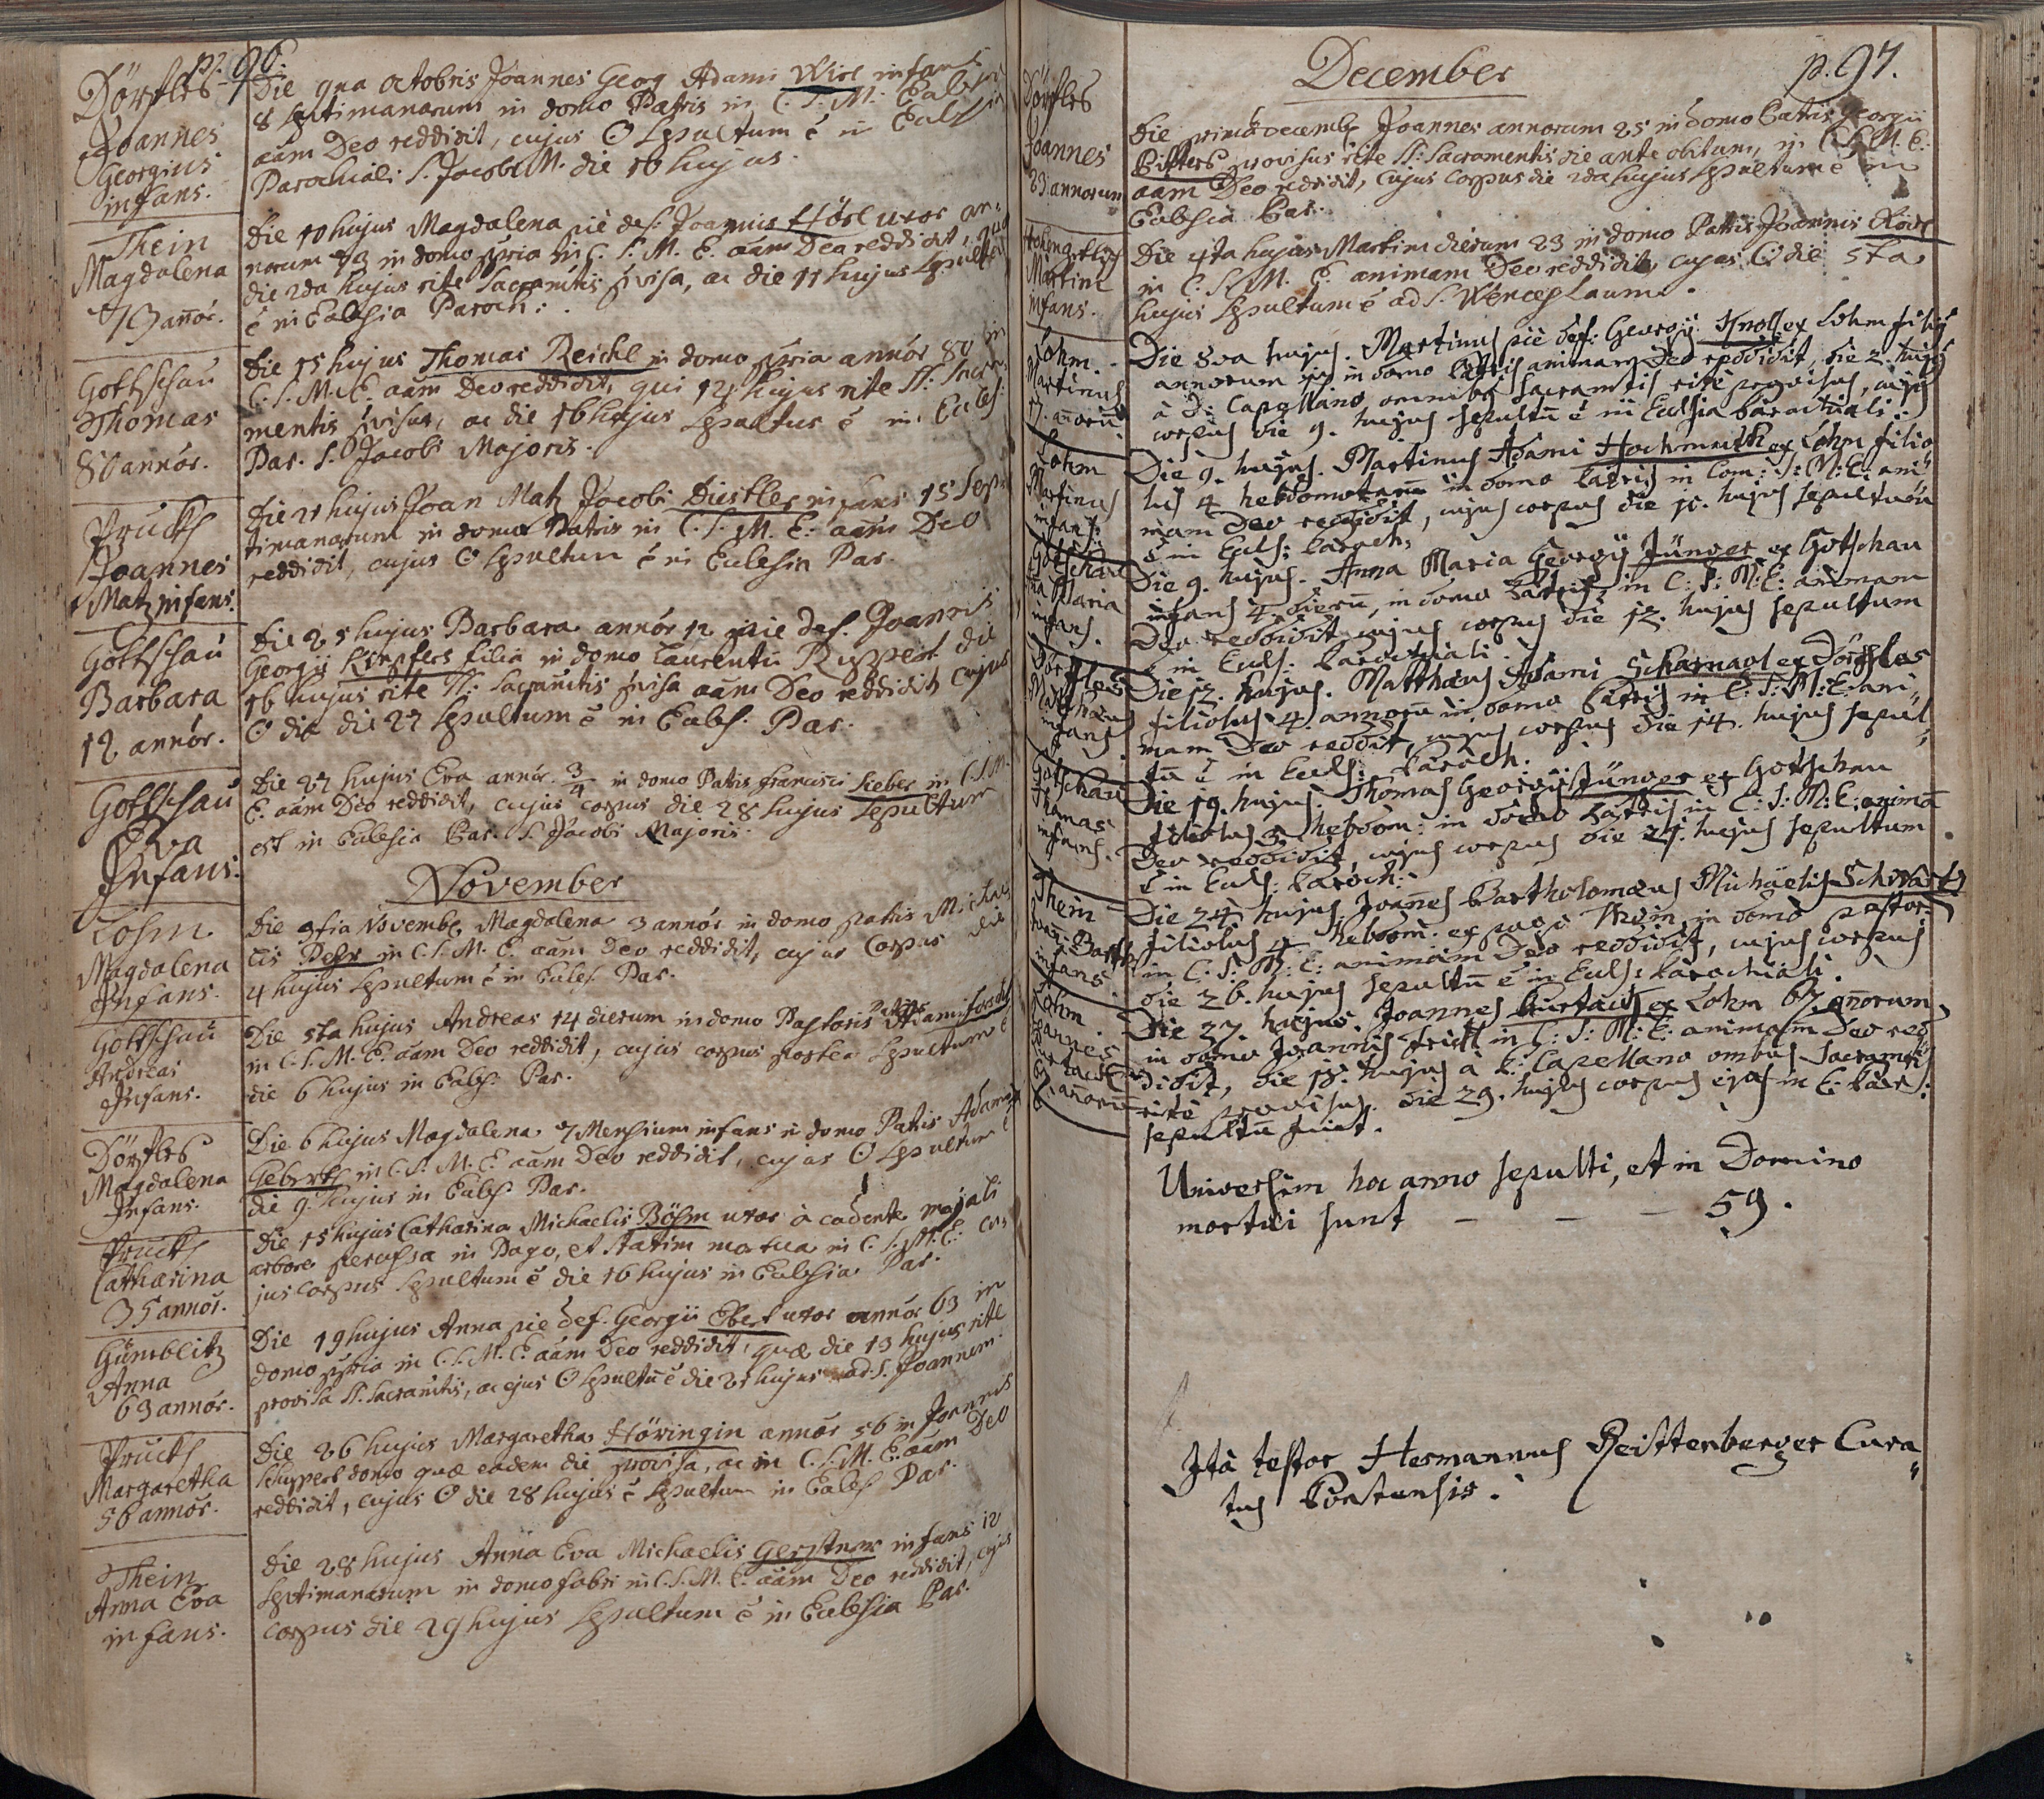 p. 96.
Dörfles
Joannes
Georgius
infans.
Die 9na Octobris Joannes Georg Adami Wirl infans
8 septimanarum in domo Patris in C. S. M. Eccles
aam Deo reddidit, cujus C sepultum ē in Eccles
Parochiali S. Jacobi M. die 10 hujus.
Thein
Magdalena
73 annor.
Die 10 hujus Magdalena pie def. Joannis Hösl uxor an-
norum 73 in domo ppria in C. S. M. E. aam Deo reddidit, quae
die 2da hujus rite Sacramtis pvisa, ac die 11 hujus sepulta
ē in Ecclesia Paroch:.
Gottschau
Thomas
80 annor.
Die 15 hujus Thomas Reichl in domo ppria annor 80 in
C. S. M. E. aam Deo reddidit, qui 12 hujus rite SS: Sacra-
mentis pvisus, ac die 16 hujus sepultus ē in Eccles:
Par. S. Jacobi Majoris.
Pruckh
Joannes
Matz infans.
Die 21 hujus Joan Matz Jacobi Diestler infans 15 Sep
timanarum in domo Patris in C. S. M. E: aam Deo
reddidit, cujus C sepultum ē in Ecclesia Par.
Gottschau
Barbara
12 annor.
Die 25 hujus Barbara annor 12 pie def. Joannis
Georgii Kipfers filia in domo Laurentii Ruppert die
16 hujus rite SS: Sacramtis pvisa aam Deo reddidit cujus
C die die 27 sepultum ē in Eccles. Par.
Gottschau
Eva
Infans.
Die 27 hujus Eva annor. 3/4 in domo Patris Francisci Sieber in C. S. M.
E. aam Deo reddidit, cujus corpus die 28 hujus sepultum
est in Ecclesia Par. S. Jacobi Majoris.
November
Lohm
Magdalena
Infans.
Die 3tia Novemb. Magdalena 3 annor in domo patris Micha
lis in C. S. M. E. aam Deo reddidit, cujus Corpus die
4 hujus sepultum ē in Eccles. Par.
Gottschau
Andreas
Infans.
Die 5ta hujus Andreas 14 dierum in domo Pastoris Patris Adami
in C. S. M. E. aam Deo reddidit, cujus corpus postea sepultum ē
die 6 hujus in Eccles. Par.
Dörfles
Magdalena
Infans.
Die 6 hujus Magdalena 7 Mensium infans in domo Patris Adami
Geberth in C. S. M. E. aam Deo reddidit, cujus C sepultum ē
die 9. hujus in Eccles. Par.
Pruckh
Catharina
35 annor.
Die 15 hujus Catharina Michaelis Böhm uxor à cadente majali
arbore percussa in Pago, et statim mortua in C. S. M. E. cu-
jus corpus sepultum ē die 16 hujus in Ecclesia Par.
Gumblitz
Anna
63 annor.
Die 19 hujus Anna pie def. Georgii Ebert uxor annor 63 in
domo ppria in C. S. M. E. aam Deo reddidit, quae die 13 hujus rite
provisa SS. Sacramtis, ac ejus C sepultū ē die 21 hujus ad S. Joannem.
Pruckh
Margaretha
56 annor.
Die 26 hujus Margaretha Höringin annor 56 in Joannis
Schuppert domo quae eadem die provisa, ac in C. S. M. E. aam Deo
reddidit, cujus C die 28 hujus ē sepultum in Eccles Par.
Thein
Anna Eva
infans.
Die 28 hujus Anna Eva Michaelis Gerstner infans 12
septimanarum in domo fabri in C. S. M. E. aam Deo reddidit, cujus
corpus die 29 hujus sepultum ē in Ecclesia Par.
December
p. 97.
Dörfles
Joannes
23 annorum
Die prima Decemb. Joannes annorum 25 in domo Patris Georgii
provisus rite SS: Sacramentis die ante obitum, in C. S. M. E.
aam Deo reddidit, cujus corpus die 2da hujus sepultum ē in
Ecclesia Par.
Martin
infans.
Die 4ta hujus Martin dierum 23 in domo Patris Joannis
in C. S. M. E. animam Deo reddidit, cujus C die 5ta
hujus sepultum ē ad S. Wenceslaum.
Lohm.
Martinus
17. anorū.
Die 8va hujus. Martinus pie def: Georgij Knoll ex Lohm filij
annorum 17 in domo Patris animam Deo reddidit, die 2. hujus
à D: Capellano omnibus Sacramtis ritè provisus, cujus
corpus die 9. hujus sepultū ē in Ecclsia Parochiali.
Lohm
Martinus
infans.
Die 9. hujus. Martinus Adami Hochmuth ex Lohm filio
lus 4 hebdomatarū in domo Patris in Com: S: M: E: ani
mam Deo reddidit, cujus corpus die 10. hujus sepultum
ē in Eccls: Paroch.
Gotschau
Maria
infans.
Die 9. hujus. Anna Maria Georgij Jünger ex Gotschau
infans 4. dierū, in domo Patris in C: S: M: E: animam
Deo reddidit, cujus corpus die 12. hujus sepultum
ē in Eccls: Parochiali.
Dörfles
Matthaeus
infans
Die 12. hujus. Matthaeus Adami Scharnagl ex Dörfles
filiolus 4. annorū in domo Patris in C: S: M: E: ani
mam Deo reddidit, cujus corpus die 14. hujus sepul
tū ē in Eccls: Paroch.
Gotschau
Thomas
infans.
Die 19. hujus. Thomas Georgij Jünger ex Gotschau
filiolus 3 hebdom: in domo Patris in C: S: M: E: animā
Deo reddidit, cujus corpus die 21. hujus sepultum
ē in Eccls: Paroch:
Thein
Joan: Barth
infans.
Die 24 hujus Joannes Bartholomaeus Michaelis Schwartz
filiolus 4 hebdom: ex pago Thein in domo pastor:
in C: S: M: E: animam Deo reddidit, cujus corpus
die 26. hujus sepultū ē in Eccls: Parochiali.
Lohm.
Joannes
67 anorū
Die 27 hujus. Joannes ex Lohm 67 anorum
in domo Joannis Frick in C: S: M: E: animam Deo red
didit, die 18. hujus à D: Capellano ombus Sacramtis
ritè provisus. die 29. hujus corpus ejus in E. Paro:
sepultū fuit.
Universim hoc anno sepulti, et in Domino
mortui sunt — — — 59.
Ità testor Hermannus Reisttenberger Cura
tus